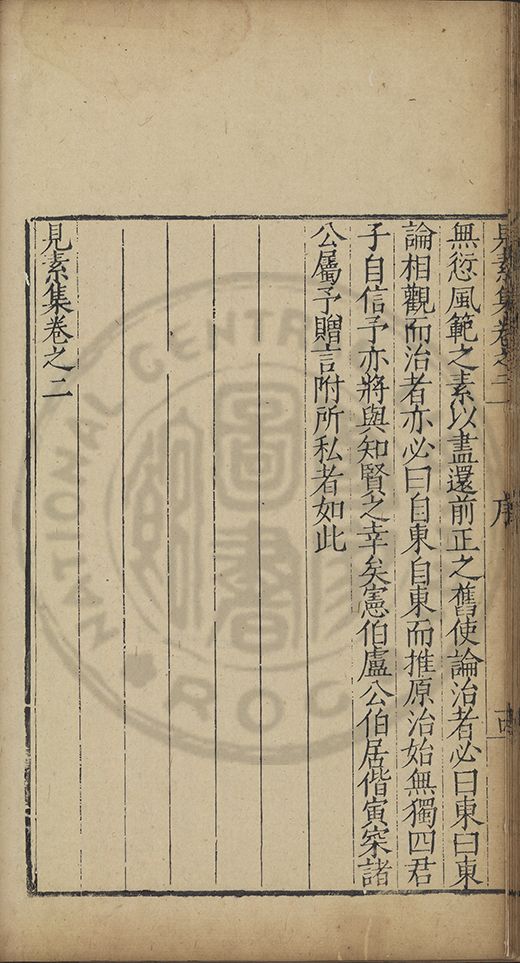 見素集卷之二
序
無愆風範之素以盡還前正之舊使論治者必曰東曰東
論相觀而治者亦必曰自東自東而推原治始無獨四君
子自信予亦將與知賢之幸矣憲伯盧公伯居偕寅寀諸
公屬予贈言附所私者如此
見素集卷之二